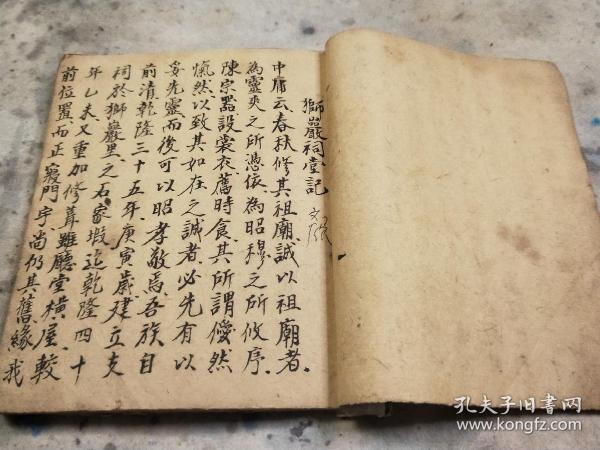 獅巖祠堂記
中庸云春秋修其祖廟誠以祖廟者
為靈爽之所憑依為昭穆之所攸序
陳宗器設裳衣薦時食其所謂僾然
愾然以致其如在之誠者必先有以
妥先靈而後可以昭孝敬焉吾族自
前清乾隆三十五年庚寅歲建立支
祠於獅巖里之石家塅迄乾隆四十
年乙未又重加修葺雖廳堂橫屋較
前位置而正寢門宇尚仍其舊緣我
孔夫子旧书网
www.kongfz.com